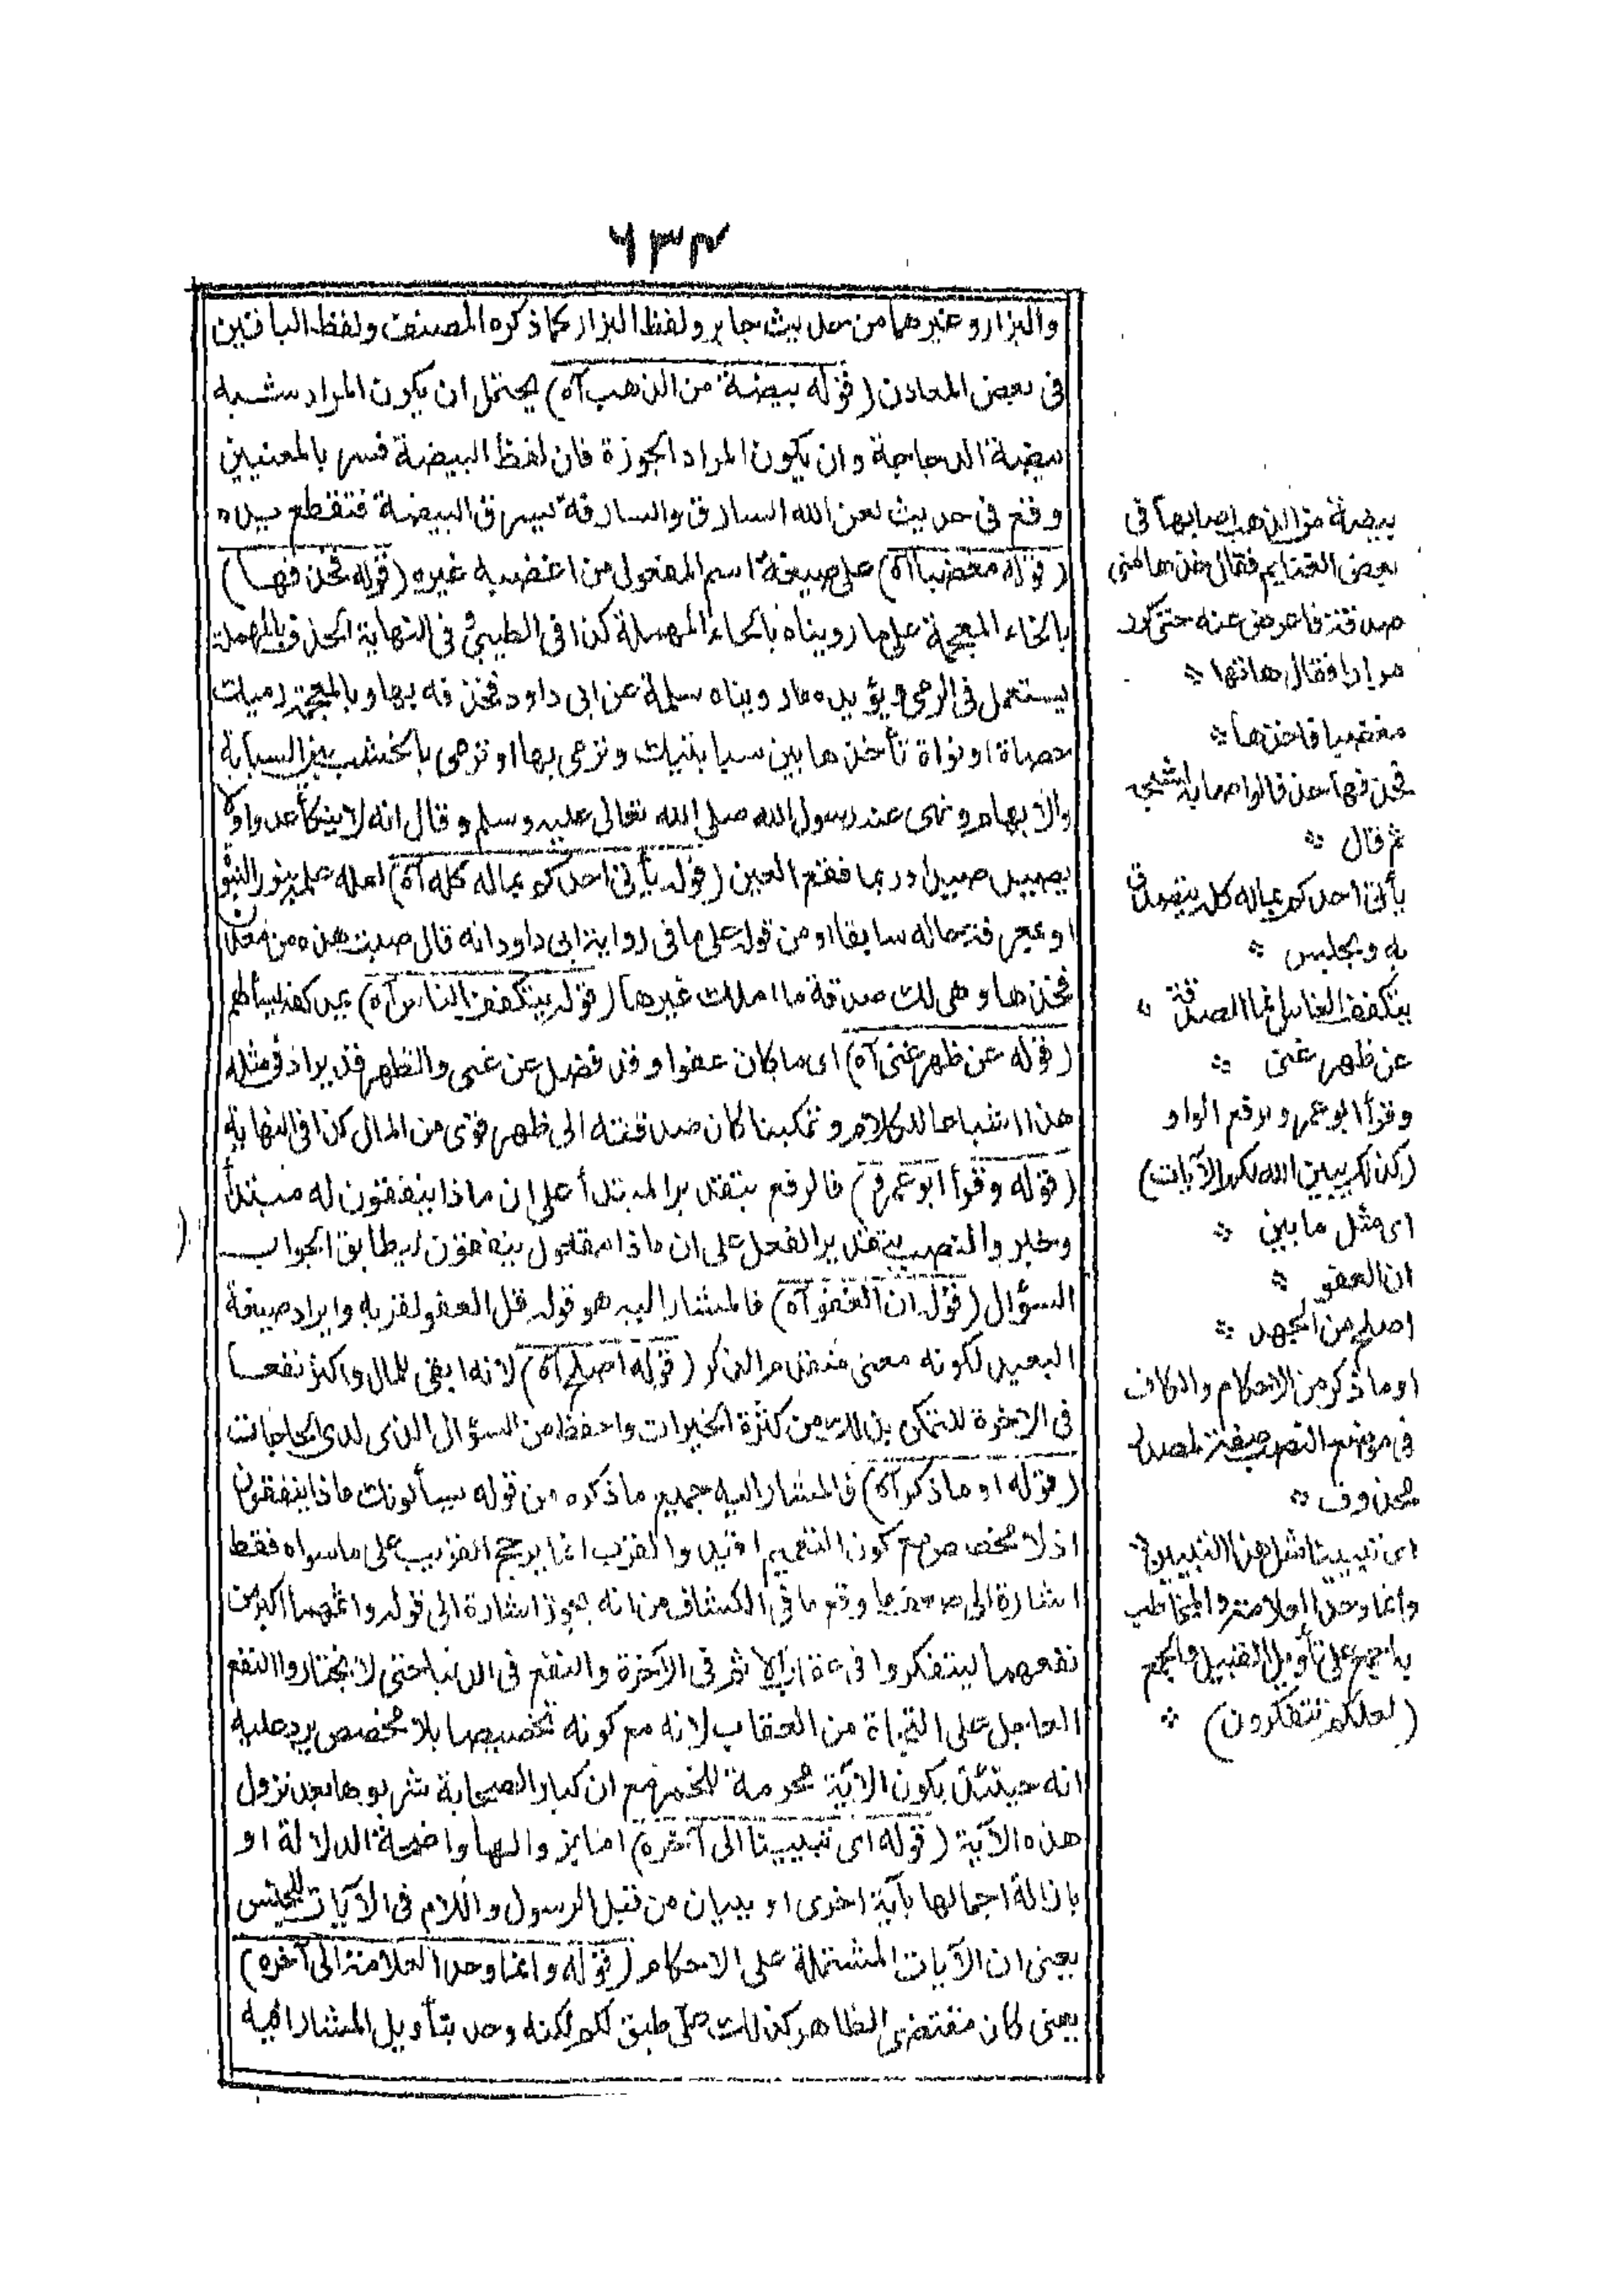 ٦٣٢
والبزار وغيرهما من حديث جابر ولفظ البزار كما ذكره المصنف ولفظ الباقين
فى بعض المعادن (قوله بيضة من الذهب آه) يحتمل ان يكون المراد شبه
بيضة الدجاجة وان يكون المراد الجوزة فان لفظ البيضة فسر بالمعنيين
وقع فى حديث لعن الله السارق والسارقة يسرق البيضة فتقطع يده
(قوله مغضبا آه) على صيغة اسم المفعول من اغضبه غيره (قوله فحذفها)
بالخاء المعجمة على ما رويناه بالحاء المهملة كذا فى الطيبى وفى النهاية الحذف بالمهملة
يستعمل فى الرمى ويؤيده ما رويناه سلمة عن ابى داود فحذفه بها وبالمعجمة رميك
حصاة او نواة تأخذها بين سبابتيك وترمى بها او ترمى بالخشب بين السبابة
والابهام ونهى عند رسول الله صلى الله تعالى عليه وسلم وقال انه لا ينكأ عدوا ولا
يصيد صيدا وربما فقع العين (قوله يأتى احدكم بماله كله آه) لعله علم بنور النبوة
او بمعرفته حاله سابقا او من قوله على ما فى رواية ابى داود انه قال صبت هذه من معدن
فخذها وهى لك صدقة ما املك غيرها (قوله يتكفف الناس آه) يمد كفه يسألهم
(قوله عن ظهر غنى آه) اى ما كان عفوا وقد فضل عن غنى والظهر قد يراد فى مثله
هذا اشباعا للكلام وتمكينا كان صدقته الى ظهر قوى من المال كذا فى النهاية
(قوله وقرأ ابو عمرو) فالرفع بتقدير المبتدأ على ان ماذا ينفقون له مبتدأ
وخبر والنصب بتقدير الفعل على ان ماذا مفعول ينفقون ليطابق الجواب
السؤال (قوله ان العفو آه) فالمشار اليه هو قوله قل العفو لقربه وايراد صيغة
البعيد لكونه معنى متقدم الذكر (قوله اصلح آه) لانه ابقى للمال واكثر نفعا
فى الاخرة للتمكن بذلك من كثرة الخيرات واحفظ من السؤال الذى لدى الحاجات
(قوله او ما ذكر آه) فالمشار اليه جميع ما ذكره من قوله يسألونك ماذا ينفقون
اذ لا مخصص مع كون التعميم افيد والقرب انما يرجح القريب على ما سواه فقط
اشارة الى ما وقع ما فى الكشاف من انه يجوز اشارة الى قوله واثمهما اكبر من
نفعهما ليتفكروا فى عقاب الاثم فى الآخرة والنفع فى الدنيا حتى لا يختاروا النفع
العاجل على النجاة من العقاب لانه مع كونه تخصيصا بلا مخصص يرد عليه
انه حينئذ يكون الآية محرمة للخمر مع ان كبار الصحابة شربوها بعد نزول
هذه الآية (قوله اى تبيينا الى آخره) اما بانزالها واضحة الدلالة او
بازالة اجمالها بآية اخرى او ببيان من قبل الرسول واللام فى الآيات للجنس
يعنى ان الآيات المشتملة على الاحكام (قوله وانما وحد العلامة الى آخره)
يعنى كان مقتضى الظاهر كذلك على طبق لكم لكنه وحد بتأويل المشار اليه
بيضة من الذهب اصابها فى
بعض الغنايم فقال خذها منى
صدقة فاعرض عنه حتى كرر
مرارا فقال هاتها
مغضبا فاخذها
فحذفها حذفا لو اصابه لشجه
ثم قال
يأتى احدكم بماله كله يتصدق
به ويجلس
يتكفف الناس انما الصدقة
عن ظهر غنى
وقرأ ابو عمرو برفع الواو
(كذلك يبين الله لكم الآيات)
اى مثل ما بين
ان العفو
اصلح من الجهد
او ما ذكر من الاحكام والكاف
فى موضع النصب صفة لمصدر
محذوف
اى تبيينا مثل هذا التبيين
وانما وحد العلامة والمخاطب
به جمع على تأويل القبيل والجمع
(لعلكم تتفكرون)